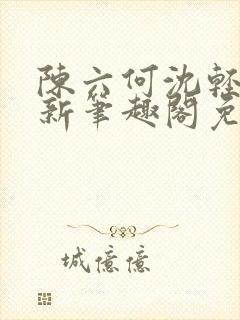 陳六何沈輕
新筆趣閣免
城億億